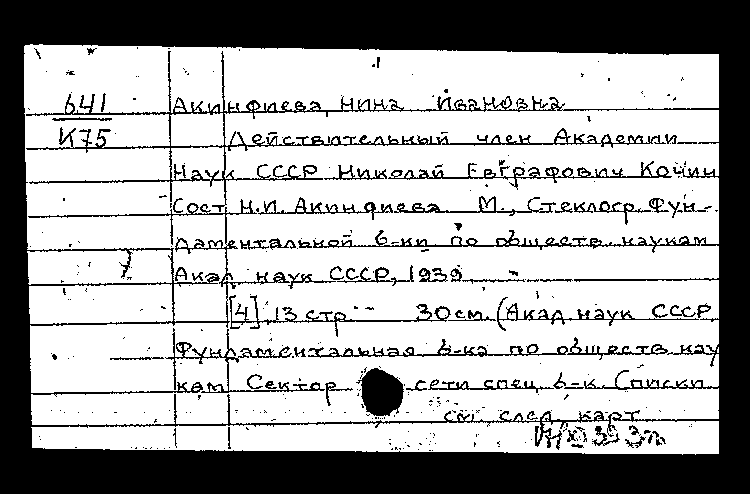 641
К75
Акинфиева, Нина Ивановна
Действительный член Академии
Наук СССР Николай Евграфович Кочин
Сост. Н.И. Акинфиева. М., Стеклогр. Фун-
даментальной б-ки по обществ. наукам
Акад. наук СССР, 1939.
[4], 13 стр. 30 см. (Акад. наук СССР.
Фундаментальная б-ка по обществ. нау
кам Сектор сети спец. б-к. Списки
см. след. карт.